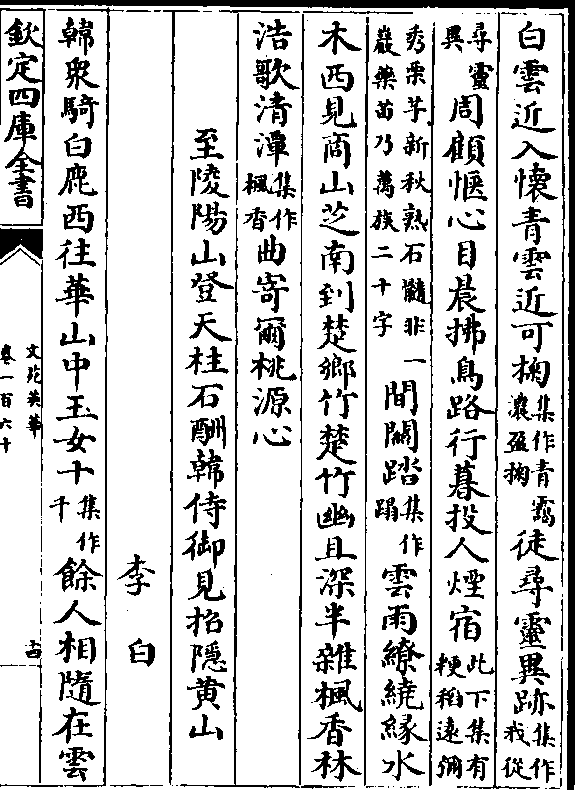 白雲近入懷青雲近可掬集作青靄濃盈掬徒尋靈異跡集作我從
尋靈異周顧愜心目晨拂鳥路行暮投人煙宿此下集有粳稻遠彌
秀栗芋新秋熟石髓非一巖藥苗乃萬族二十字間關踏集作蹋雲雨繚繞緣水
木西見商山芝南到楚鄉竹楚竹幽且深半雜楓香林
浩歌清潭集作楓香曲寄爾桃源心
至陵陽山登天柱石酬韓侍御見招隱黃山
李白
韓衆騎白鹿西往華山中玉女十集作千餘人相隨在雲
欽定四庫全書
文苑英華
卷一百六十
十四